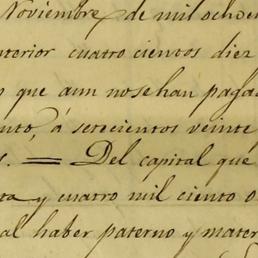 Noviembre de mil ochocien
nterior cuatro cientos diez
que aun nose han pagad
nto, á setecientos veinte
s. = Del capital qué
ta y cuatro mil ciento o
al haber paterno y mater